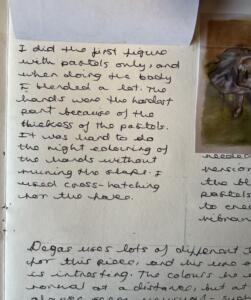 I did the first figure
with pastels only, and
when doing the body
I blended a lot. The
hands were the hardest
part because of the
thickness of the pastols.
It was hard to do
the right colouring of
the hands without
ruining the shape. I
used cross-hatching
for the face.
needed
version
the bl
pastels
to crea
vibran
Degas uses lots of different
for this piece, and his use o
is intresting. The colours he u
normal at a distance, but as